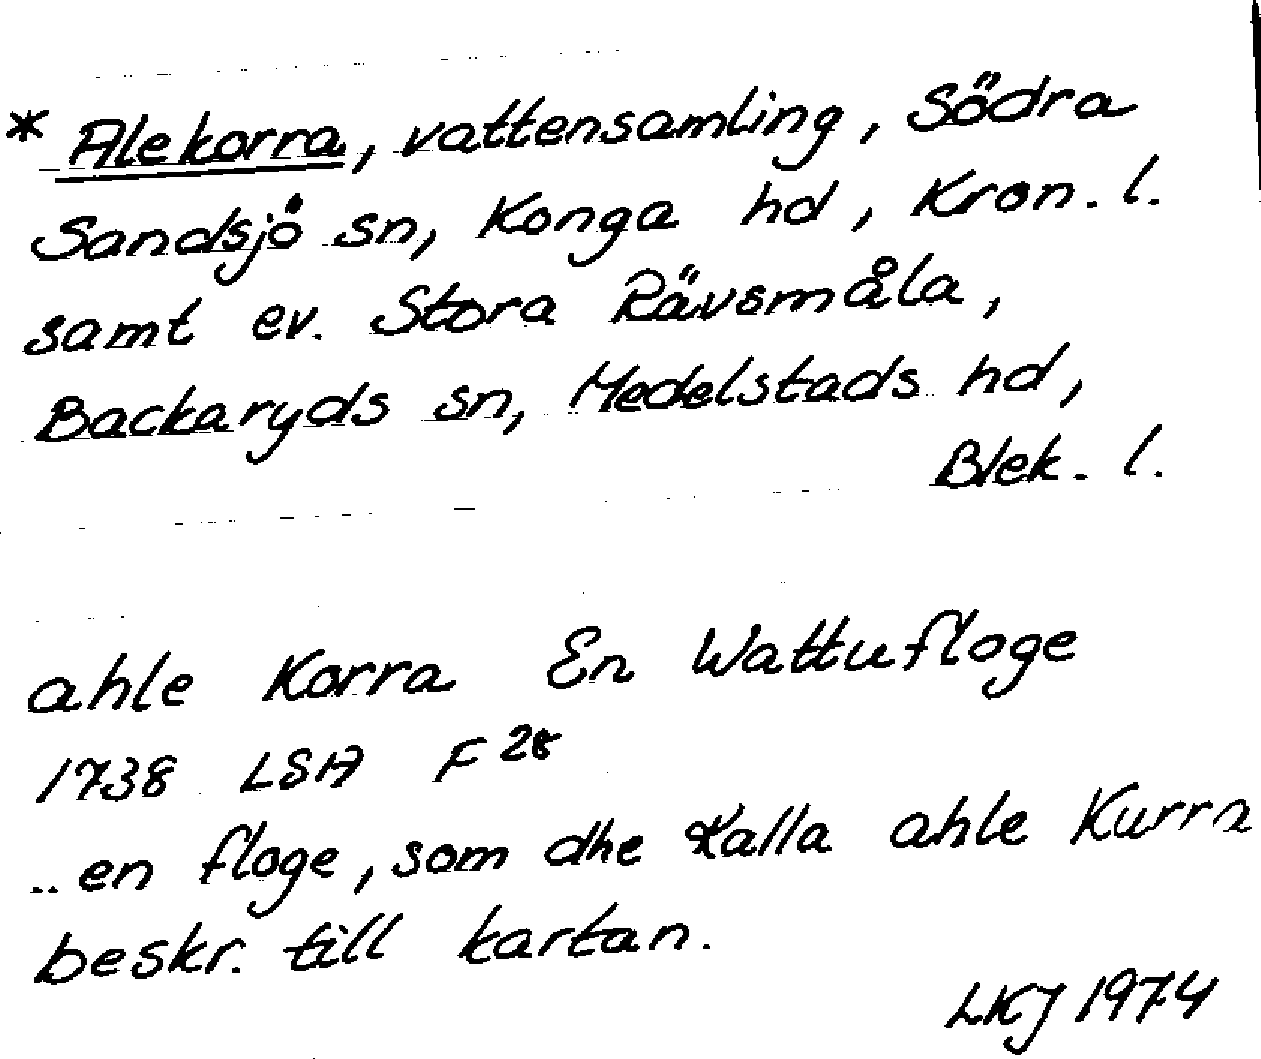 * Alekorra, vattensamling, Södra
Sandsjö sn, Konga hd, Kron. l.
samt ev. Stora Rävsmåla,
Backaryds sn, Medelstads hd,
Blek. l.
ahle Korra En Wattufloge
1738 LSA F 28
.. en floge, som dhe Kalla ahle Kurra
beskr. till kartan.
LKJ 1974